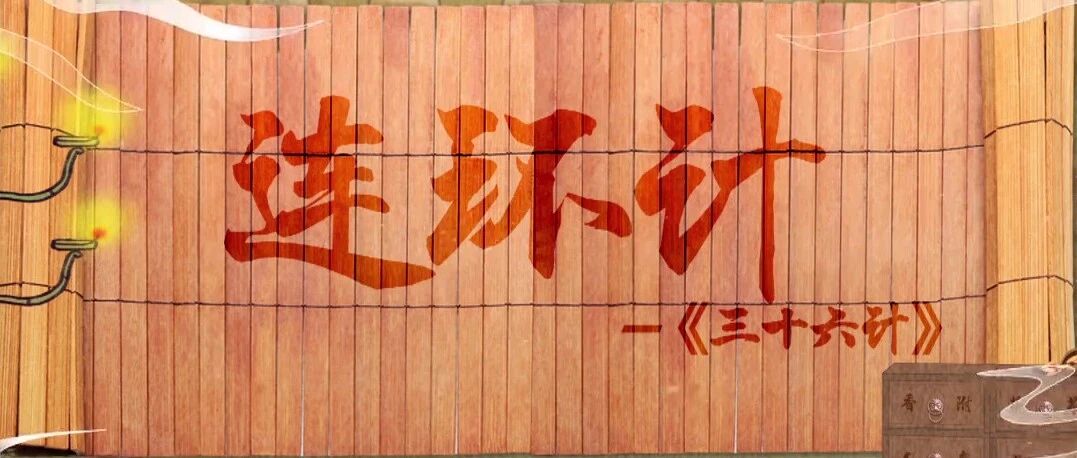 连环计
—《三十六计》
香附